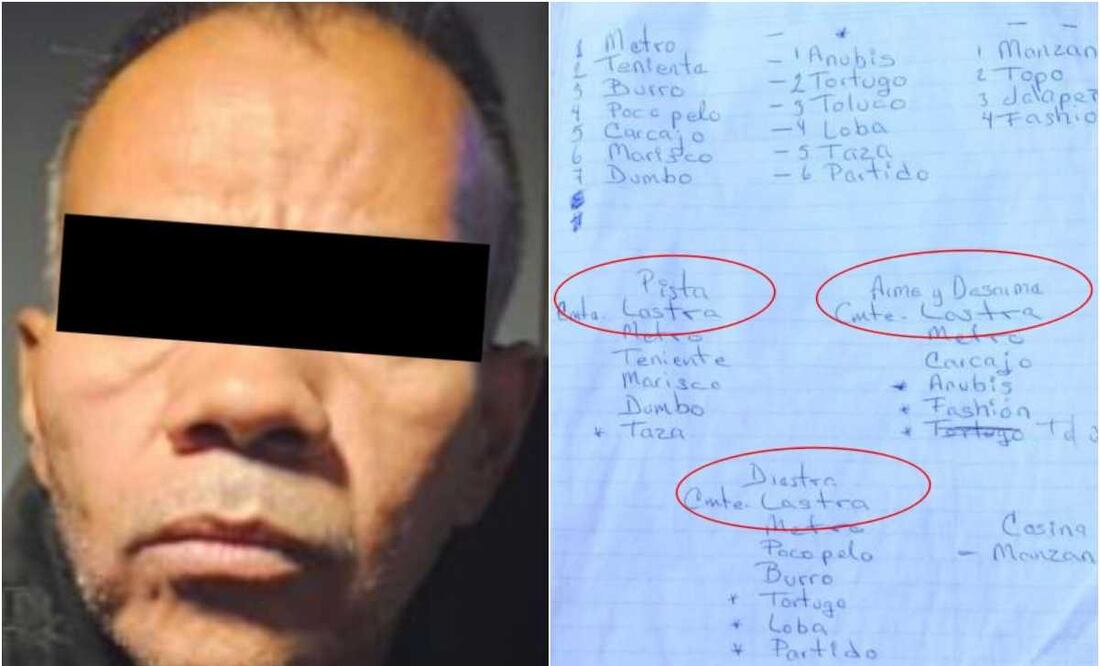 1 Metro
2 Tenienta
3 Burro
4 Poco pelo
5 Carcajo
6 Marisco
7 Dumbo
8
9
– *
– 1 Anubis
– 2 Tortugo
– 3 Toluco
– 4 Loba
– 5 Taza
– 6 Partido
– –
1 Manzan
2 Topo
3 Jalape
4 Fashio
Pista
Cmte. Lastra
Metro
Teniente
Marisco
Dumbo
* Taza
Arme y Desarme
Cmte. Lastra
Metro
Carcajo
* Anubis
* Fashión
* Tortugo
Diestra
Cmte. Lastra
Metro
Poco pelo
Burro
* Tortugo
* Loba
* Partido
Cosina
– Manzan